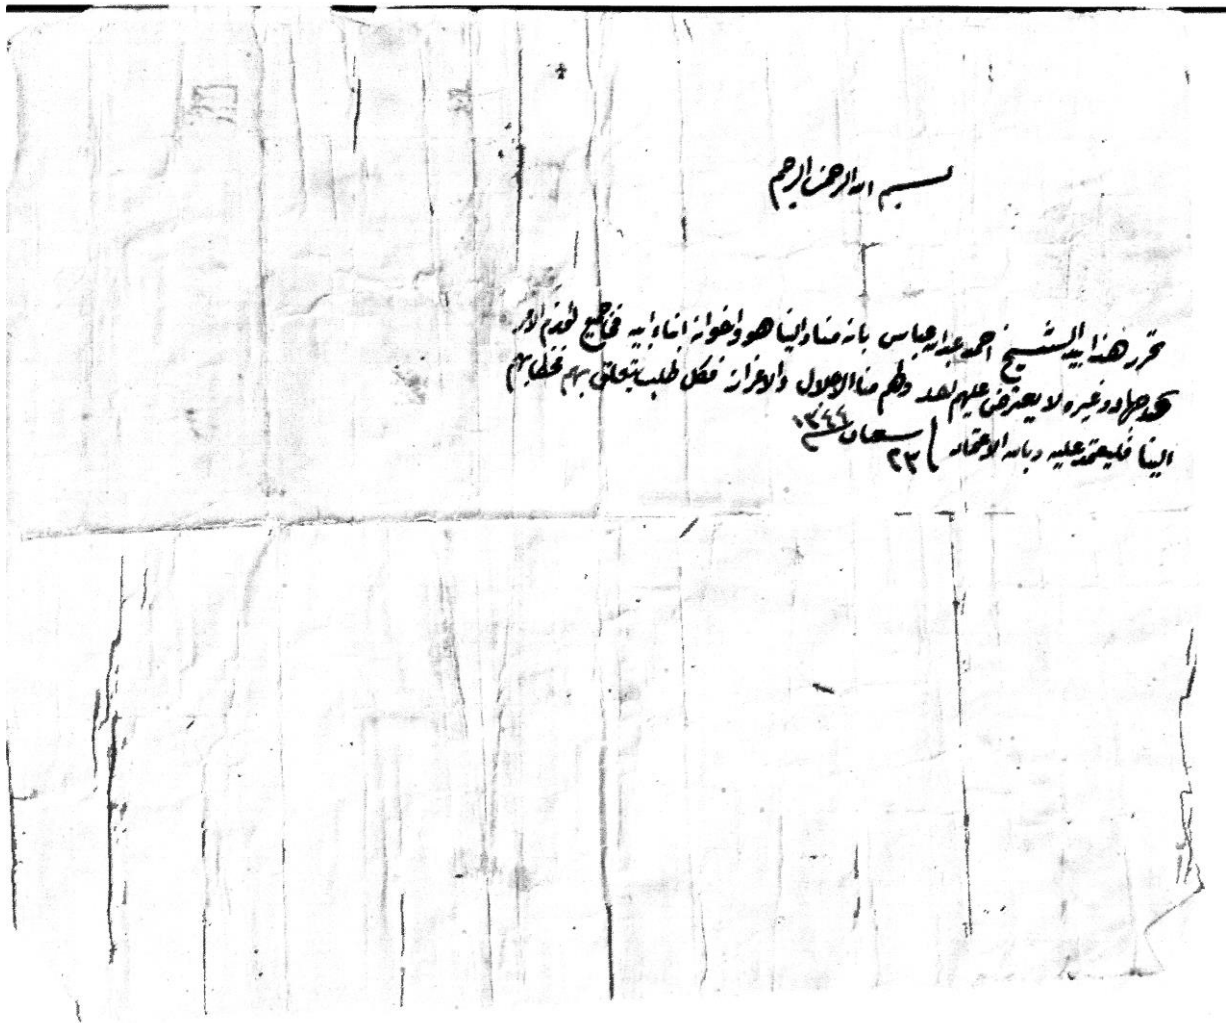 بسم الله الرحمن الرحيم
تحرر هذا بيد الشيخ احمد عبدالله عباس بانه منا والينا هو واخوانه ابناء ابيه في جميع لوازم الامر
جهاد وغيره لا يعترض عليهم احد ولهم منا الاجلال والاعزاز فكل طلب يتعلق بهم فخطابهم
الينا فليعتمد عليه وبالله الاعتماد
٢٣ شعبان ١٣٤٤